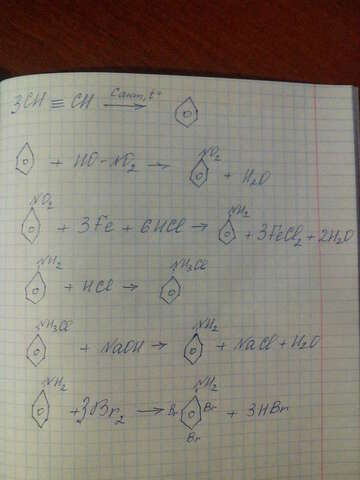 3CH ≡ CH C акт, t° →
+ HO-NO2 → NO2 + H2O
NO2 + 3Fe + 6HCl → NH2 + 3FeCl2 + 2H2O
NH2 + HCl → NH3Cl
NH3Cl + NaOH → NH2 + NaCl + H2O
NH2 + 3Br2 → Br NH2 Br Br + 3HBr